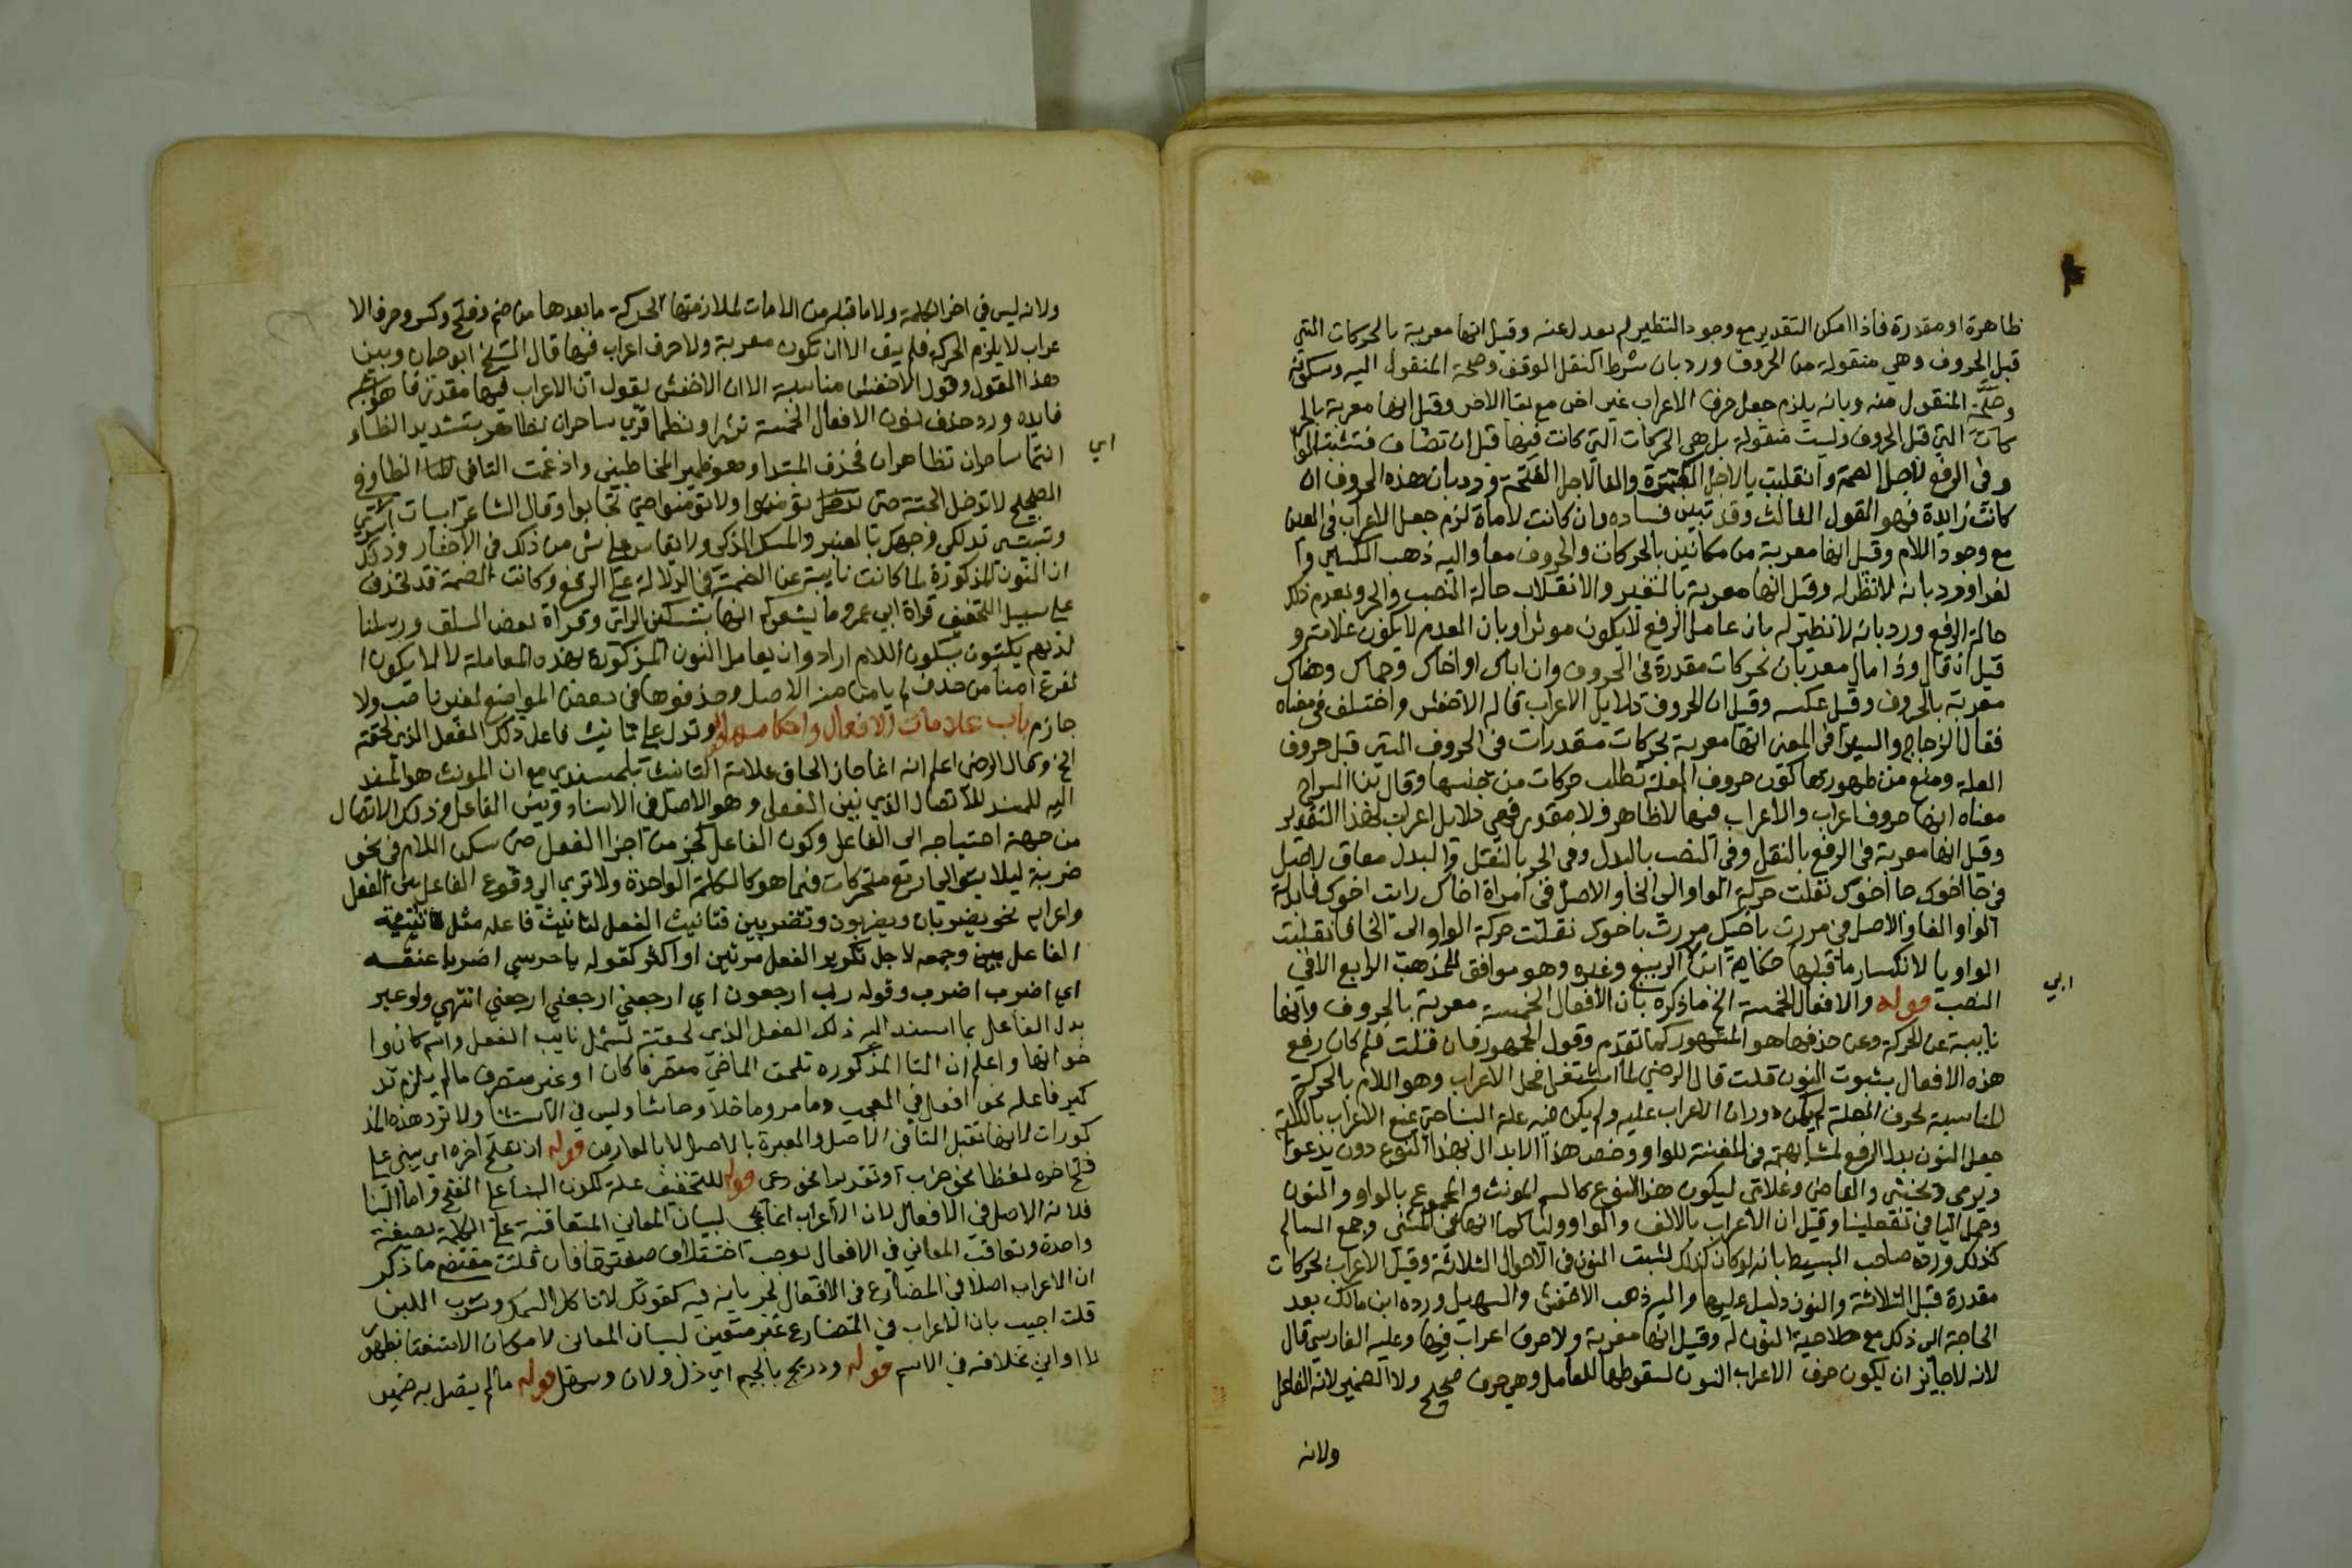 ظاهرة او مقدرة فاذا امكن التقدير مع وجود النظير لم يعدل عنه وقيل انها معربة بالحركات التي
قبل الحروف وهي منقولة من الحروف ورد بان شرط النقل الوقف وصحة المنقول اليه وسكونه
وصحة المنقول منه وبانه يلزم جعل حرف الاعراب غير اخر مع بقا الاخر وقيل انها معربة بالحر
كات التي قبل الحروف وليست منقولة بل هي الحركات التي كانت فيها قبل ان تضاف فثبتت الوا
و في الرفع لاجل الضمة وانقلبت يا لاجل الكسرة والفا لاجل الفتحة ورد بان هذه الحروف ان
كانت زايدة فهو القول الثالث وقد تبين فساده وان كانت لاما لزم جعل الاعراب في العين
مع وجود اللام وقيل انها معربة من مكانين بالحركات والحروف معا واليه ذهب الكساي وا
لفرا ورد بانه لا نظير له وقيل انها معربة بالتغير والانقلاب حالة النصب والجر وبعدم ذلك
حالة الرفع ورد بانه لا نظير له بان عامل الرفع لا يكون موثرا وبان العدم لا يكون علامة و
قيل ان فاك وذا مال معربان بحركات مقدرة في الحروف وان اباك واخاك وحماك وهناك
معربة بالحروف وقيل عكسه وقيل ان الحروف دلايل الاعراب قاله الاخفش واختلف في معناه
فقال الزجاج والسيرافي المعنى انها معربة بحركات مقدرات في الحروف التي قبل حروف
العلة ومنع من ظهورها كون حروف العلة تطلب حركات من جنسها وقال بن السراج
معناه انها حروف اعراب والاعراب فيها لا ظاهر ولا مقدر فهي دلايل اعراب بهذا التقدير
وقيل انها معربة في الرفع بالنقل وفي النصب بالبدل وفي الجر بالنقل والبدل معا فالاصل
في جا اخوك جا اخوك نقلت حركة الواو الى الخا والاصل في رايت اخاك رايت اخوك فابدلت
الواو الفا والاصل في مررت باخيك مررت باخوك نقلت حركة الواو الى الخا فانقلبت
الواو يا لانكسار ما قبلها حكاية ابن ابي الربيع وغيره وهو موافق للمذهب الرابع الا في
النصب قوله والافعال الخمسة الخ ما ذكره بان الافعال الخمسة معربة بالحروف وانها
نايبة عن الحركة وعن حذفها هو المشهور كما تقدم وقول الجمهور فان قلت فلم كان رفع
هذه الافعال بثبوت النون قلت قال الرضي لما اشتغل محل الاعراب وهو اللام بالحركة
المناسبة لحرف العلة لم يكن دوران الاعراب عليه ولم يكن فيه علة البنا حتى يمنع الاعراب بالكلية
جعل النون بدل الرفع لمشابهته في الغنة للواو وخص هذا الابدال بهذا النوع دون يدعو
ويرمي ويخشى والقاضي وغلامي ليكون هذا النوع كالاسم المونث والمجموع بالواو والنون
وحمل اليا في تفعلين وقيل ان الاعراب بالالف والواو واليا كما انها في المثنى وجمع السالم
كذلك ورده صاحب البسيط بانه لو كان كذلك لثبتت النون في الاحوال الثلاثة وقيل الاعراب بحركات
مقدرة قبل الثلاثة والنون دليل عليها واليه ذهب الاخفش والسهيلي ورده ابن مالك بعد
الحاجة الى ذلك مع صلاحية النون له وقيل انها معربة ولا حرف اعراب فيها وعليه الفارسي قال
لانه لا جايز ان يكون حرف الاعراب النون لسقوطها للعامل وهي حرف صحيح ولا الضمير لانه الفاعل
ولانه
ولانه ليس في اخر الكلمة ولا ما قبله من اللامات لملازمتها لحركة ما بعدها من ضم وفتح وكسر وحرف الا
عراب لا يلزم الحركة فلم يبق الا ان تكون معربة ولا حرف اعراب فيها قال الشيخ ابو حيان وبين
هذا القول وقول الاخفش مناسبة الا ان الاخفش يقول ان الاعراب فيها مقدر
فايده ورد حذف نون الافعال الخمسة نثرا ونظما قري ساحران تظاهرا بتشديد الظاء
اي انتما ساحران تظاهران فحذف المبتدا وهو ضمير المخاطبين وادغمت التا في الظا وفي
الصحيح لا تدخلوا الجنة حتى تؤمنوا ولا تؤمنوا حتى تحابوا وقال الشاعر ابيت اسري
وتبيتي تدلكي وجهك بالعنبر والمسك الذكي ولا يقاس على شي من ذلك في الاختيار وذلك
ان النون المذكورة لما كانت نايبة عن الضمة في الدلالة على الرفع وكانت الضمة قد تحذف
على سبيل التخفيف قراة ابي عمرو وما يشعركم انها بتسكين الراي وقراة بعض السلف ورسلنا
لديهم يكتبون بسكون اللام ارادوا ان يعامل النون المذكورة بهذه المعاملة لا لما يكون ا
لفرع امنا من حذف لم يامن منه الاصل وحذفوها في بعض المواضع لغير ناصب ولا
جازم باب علامات الافعال واحكامها قوله وتدل على تانيث فاعل ذلك الفعل الذي لحقته
الخ قال الرضي اعلم انه انما جاز الحاق علامة التانيث بالمسند مع ان المونث هو المسند
اليه للمسند للاتصال الذي بين الفعل وهو الاصل في الاسناد وبين الفاعل وذلك الاتصال
من جهة احتياجه الى الفاعل وكون الفاعل كجز من اجزا الفعل حتى سكن اللام في نحو
ضربت ليلا يتوالى اربع متحركات فيما هو كالكلمة الواحدة ولا ترى الى وقوع الفاعل بين الفعل
واعرابه نحو يضربان ويضربون وتضربين فتانيث الفعل لتانيث فاعله مثل تثنيته
الفاعل وجمعه لاجل تكرير الفعل مرتين او اكثر كقوله يا حرسي اضربا عنقه
اي اضرب اضرب وقوله رب ارجعون اي ارجعني ارجعني ارجعني انتهى ولو عبر
بدل الفاعل بما اسند اليه ذلك الفعل الذي لحقته لشمل نايب الفعل واسم كان وا
خواتها واعلم ان التا المذكوره تلحق الماضي متصرفا كان او غير متصرف ما لم يلزم تذ
كير فاعله نحو افعل في التعجب وما مر وما خلا وحاشا وليس في الاستثنا ولا ترد هذه المذ
كورات لانها تقبل التا في الاصل والعبرة بالاصل لا بالعارض قوله ان يفتح اخره اي يبنى على
فتح اخره لفظا نحو ضرب او تقديرا نحو دعى قوله للتخفيف علة لكون البنا على الفتح واما البنا
فلانه الاصل في الافعال لان الاعراب انما يجي لبيان المعاني المتعاقبة على الكلمة بصيغة
واحدة وتعاقب المعاني في الافعال يوجب اختلاف صيغتها فان قلت مقتضى ما ذكر
ان الاعراب اصلا في المضارع في الافعال لجريانه فيه كقولك لا تاكل السمك وتشرب اللبن
قلت اجيب بان الاعراب في المضارع غير متعين لبيان المعاني لامكان الاستغنا بظهور
لا او ان بخلافه في الاسم قوله ودريج بالجيم اي ذل ولان وسهل قوله ما لم يتصل به ضمير